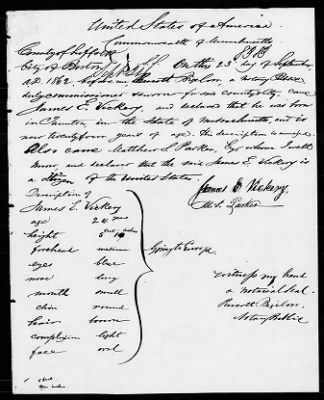 United States of America.
Commonwealth of Massachusetts
County of Suffolk
City of Boston On the 23d day of September
A.D. 1862, before me Bigelow, a notary Public
duly commissioned sworn for said county & city came
James E. Vickery, and declared that he was born
in Taunton in the state of Massachusetts, and is
now twenty four years of age. The description is
Also came Matthew S. Parker, to whom I well
know, and declared that the said James E. Vickery is
a citizen of the United States.
Description of
James E. Vickery
James E. Vickery
M. S. Parker
age 24 years
height 5 feet
forehead medium
eyes blue
nose long
mouth small
chin round
hair brown
complexion light
face oval
Going to Europe.
witness my hand
& notarial Seal.
Bigelow
Notary Public